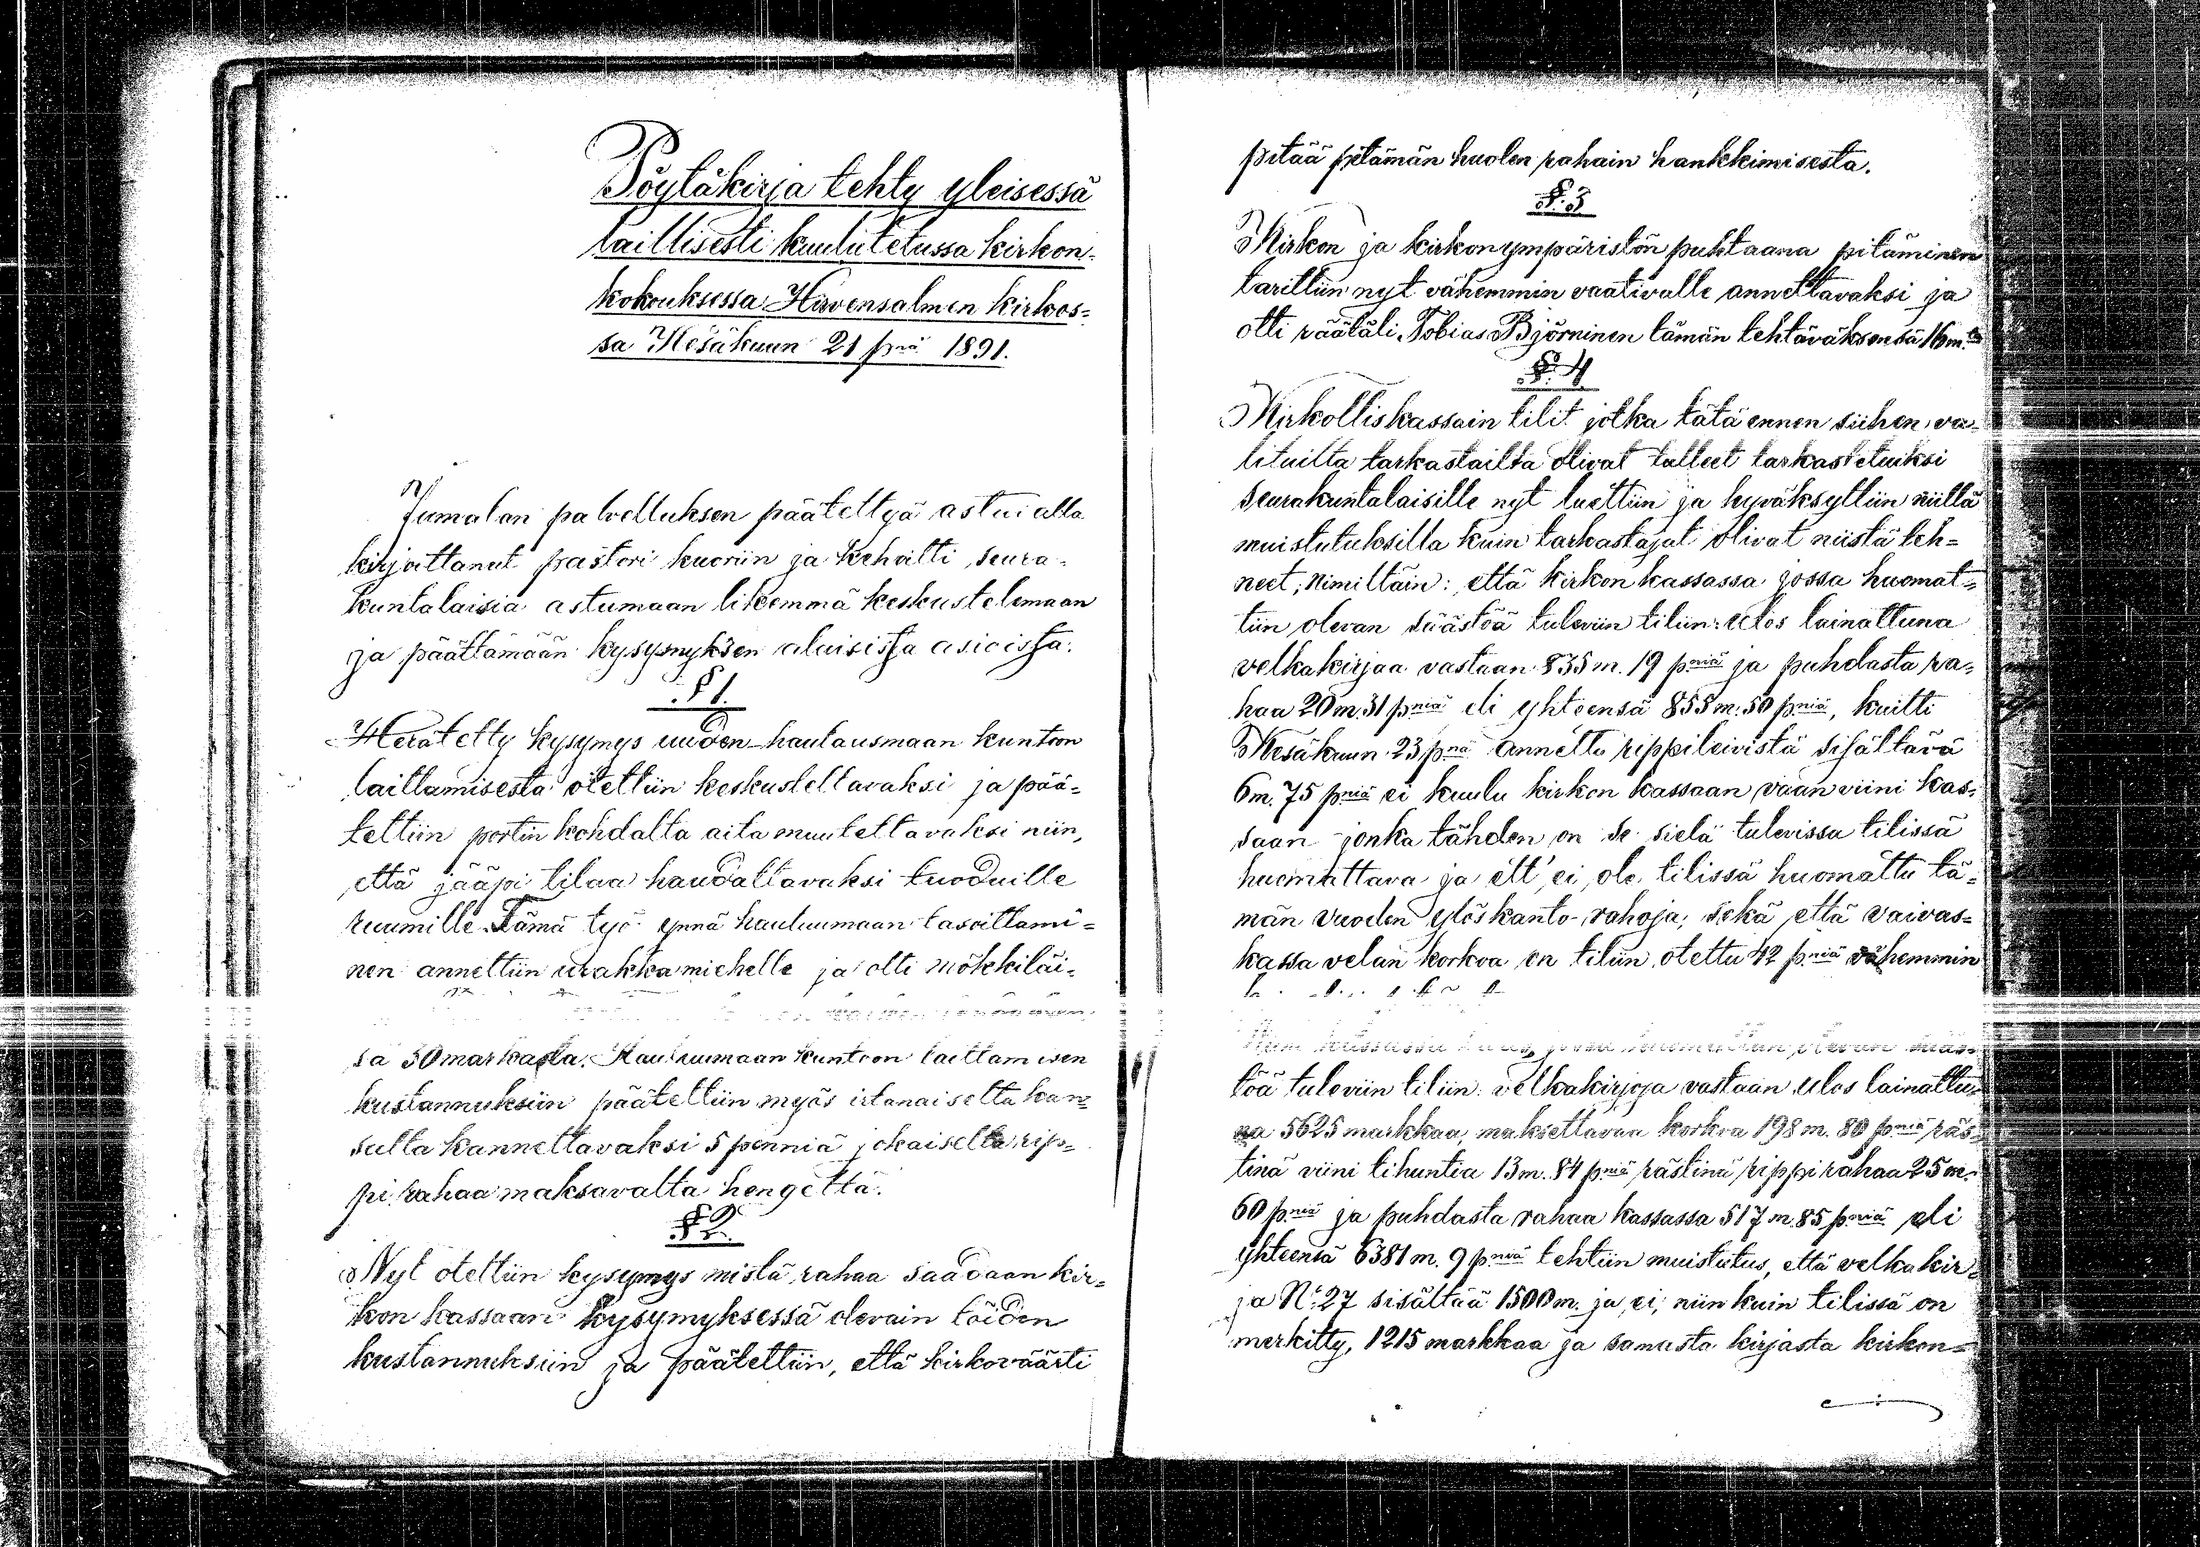 Pöytäkirja tehty yleisessä
laillisesti kuulutetussa kirkon-
kokouksessa Hirvensalmen kirkos-
sa Kesäkuun 21 pnä 1891.
Jumalan palvelluksen päätettyä astui alla
kirjoittanut pastori kuoriin ja kehoitti seura-
kuntalaisia astumaan likemmä keskustelemaan
ja päättämään kysymyksen alaisista asioista.
§ 1.
Herätetty kysymys uuden hautausmaan kuntoon
laittamisesta otettiin keskusteltavaksi ja pää-
tettiin portin kohdalta aita muutettavaksi niin,
että jääpi tilaa haudattavaksi tuoduille
ruumille. Tämä työ ynnä hautuumaan tasoittami-
nen annettiin urakka miehelle ja otti mökkiläi-
sä 30 markasta. Hautuumaan kuntoon laittamisen
kustannuksiin päätettiin myös irtanaiselta kan-
salta kannettavaksi 5 penniä jokaiselta rip-
pi rahaa maksavalta hengeltä.
§ 2.
Nyt otettiin kysymys mistä rahaa saadaan kir-
kon kassaan kysymyksessä olevain töiden
kustannuksiin ja päätettiin, että kirkoväärti
pitää pitämän huolen rahain hankkimisesta.
§. 3
Kirkon ja kirkonympäristön puhtaana pitäminen
tarittiin nyt vähemmin vaativalle annettavaksi ja
otti räätäli Tobias Björninen tämän tehtäväksensä 16 m.
§. 4
Kirkolliskassain tilit jotka tätä ennen siihen va-
lituilta tarkastailta olivat tulleet tarkastetuiksi
seurakuntalaisille nyt luettiin ja hyväksyttiin niillä
muistutuksilla kuin tarkastajat olivat niistä teh-
neet; nimittäin: että kirkon kassassa jossa huomat-
tiin olevan säästöä tuleviin tiliin: ulos lainattuna
velkakirjaa vastaan 835 m. 19 pniä ja puhdasta ra-
haa 20 m. 31 pniä eli yhteensä 855 m. 50 pniä, kuitti
Kesäkuun 23 pnä annettu rippileivistä sisältävä
6 m. 75 pniä ei kuulu kirkon kassaan vaan viini kas-
saan jonka tähden on se sielä tulevissa tilissä
huomattava ja ett' ei ole tilissä huomattu tä-
män vuoden ylöskanto-rahoja; sekä että vaivas-
kassa velan korkoa on tiliin otettu 42 pniä vähemmin
töä tuleviin tiliin: velkakirjoja vastaan ulos lainattu-
na 5625 markkaa, maksettavaa korkoa 198 m. 80 pniä räs-
tinä viini tihuntia 13 m. 84 pniä rästinä rippi rahaa 25 m.
60 pniä ja puhdasta rahaa kassassa 517 m 85 pniä eli
yhteensä 6381 m. 9 pniä tehtiin muistutus, että velkakir-
ja No 27 sisältää 1500 m. ja ei, niin kuin tilissä on
merkitty, 1215 markkaa ja samasta kirjasta kirkon-